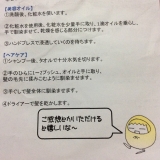 【美容オイル】
①洗顔後、化粧水を使います。
②化粧水を使用後、化粧水を少量手に取り、1滴オイルを垂らし、
手で馴染ませて、乾燥を感じる部分につけます。
③ハンドプレスで浸透していくのを待ちます。
【ヘアケア】
①シャンプー後、タオルで十分水気を切ります。
②手のひらに　プッシュ、オイルと手に取り、
髪の毛先に揉みこむように馴染ませます。
馴染ませます。
④ドライアーで髪を乾かします。
ご感想をいただける
と嬉しいな〜